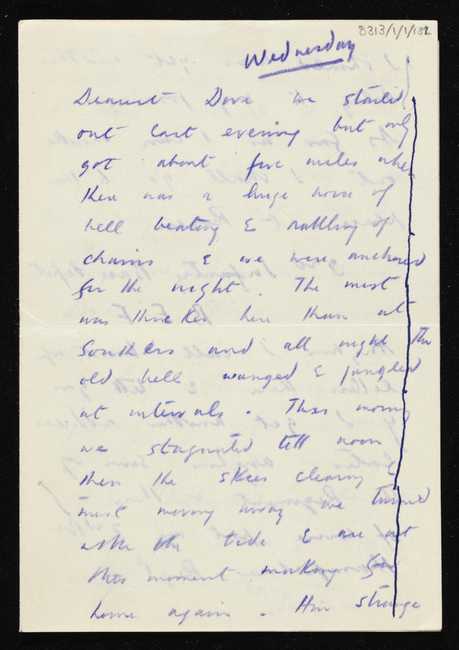 8313/1/1/182
Wednesday
Dearest Dove we started
out last evening but only
got about five miles when
there was a huge noise of
bell beating & rattling of
chains & we were anchored
for the night. The mist
was thicker here than at
and all night the
old bell wanged & jangled
at intervals. This morng
we stagnated till noon
then the skies clearing &
mist moving away we turned
with the tide & are at
this moment making for
home again. How strange